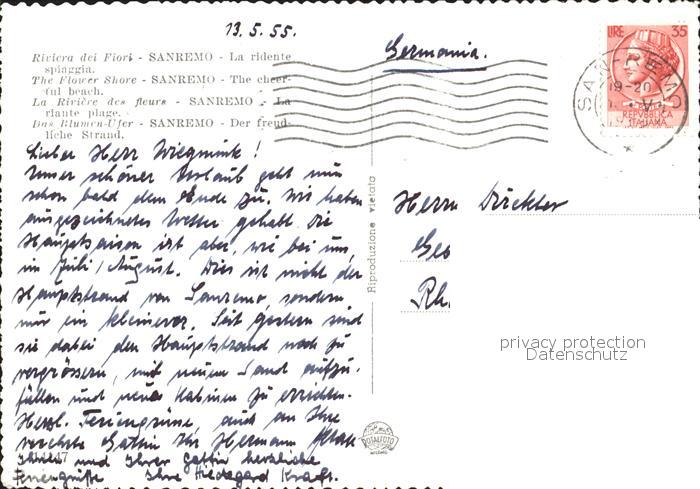 13.5.55.
Germania.
LIRE 35
REPVBBLICA
ITALIANA
SANREMO
19-20
Riviera dei Fiori - SANREMO - La ridente
spiaggia.
The Flower Shore - SANREMO - The cheer-
ful beach.
La Rivière des fleurs - SANREMO - La
riante plage.
Das Blumen-Ufer - SANREMO - Der freud-
liche Strand.
Lieber Herr Wiegmink!
Unser schöner Urlaub geht nun
schon bald dem Ende zu. Wir haben
ausgezeichnetes Wetter gehabt. Die
Hauptsaison ist aber, wie bei uns,
im Juli/August. Dies ist nicht der
Hauptstrand von Sanremo, sondern
nur ein kleinerer. Seit gestern sind
sie dabei den Hauptstrand noch zu
vergrössern, mit neuem Sand aufzu-
füllen und neue Kabinen zu errichten.
Herzl. Feriengrüsse, auch an Ihre
verehrte Gattin Ihr Hermann
Ihnen und Ihrer Gattin herzliche
Feriengrüße Ihre Hildegard Kraft.
Riproduzione vietata
Herrn Direktor
Geo
Rh.
privacy protection
Datenschutz
ROTALFOTO
MILANO